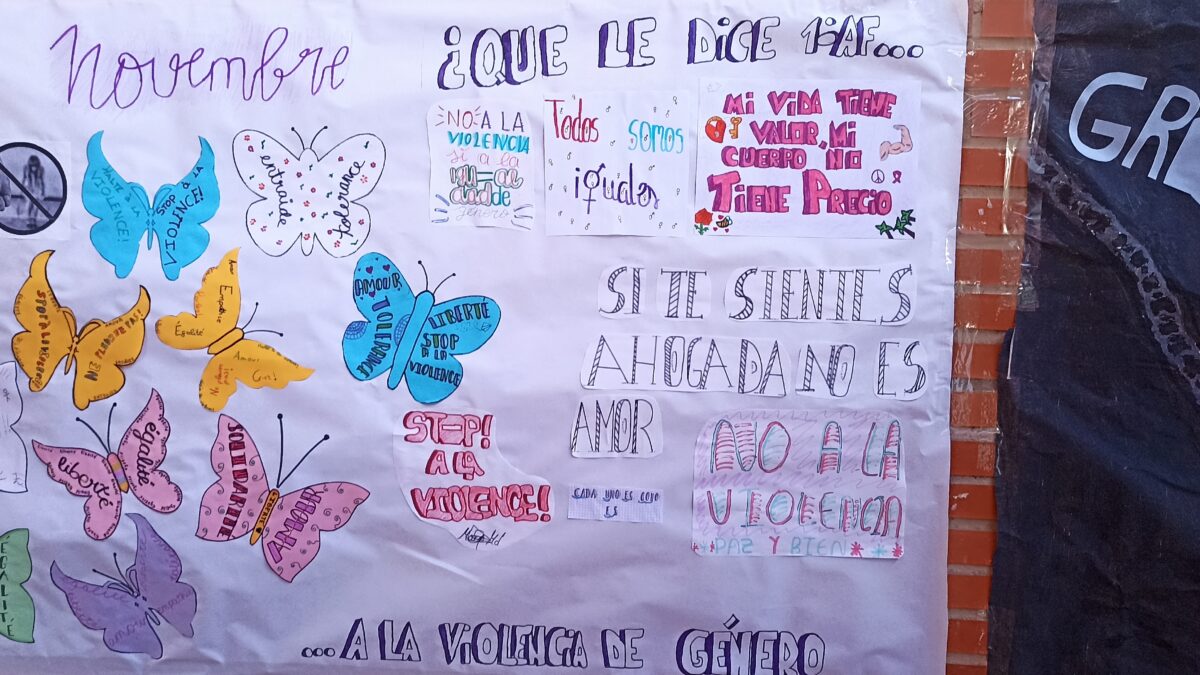 Novembre
¿QUE LE DICE 1ºAF...
NO A LA
VIOLENCIA
si a la
gu=al
dadde
género
Todos somos
iguales
MI VIDA TIENE
VALOR, MI
CUERPO NO
TIENE PRECIO
GRI
HALTE
À LA
VIOLENCE!
STOP À LA
VIOLENCE!
entraide
tolerance
STOP À LA
EN
Amour
Empathie
Égalité
Amour
AMOUR
TOLERANCE
LIBERTÉ
STOP
A LA
VIOLENCE
SI TE SIENTES
AHOGADA NO ES
AMOR
liberté
égalité
SOLIDARITÉ
LIBERTÉ
AMOUR
STOP!
A LA
VIOLENCE!
CADA UNO ES COMO
ES
NO A LA
VIOLENCIA
PAZ Y BIEN
EGALITÉ
amour
...A LA VIOLENCIA DE GÉNERO